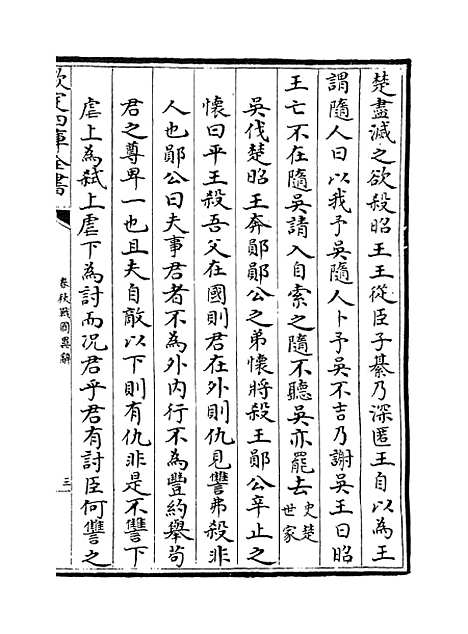 楚盡滅之欲殺昭王王從臣子綦乃深匿王自以為王
謂隨人曰以我予吳隨人卜予吳不吉乃謝吳王曰昭
王亡不在隨吳請入自索之隨不聽吳亦罷去史楚世家
吳伐楚昭王奔鄖鄖公之弟懷將殺王鄖公辛止之
懷曰平王殺吾父在國則君在外則仇見讐弗殺非
人也鄖公曰夫事君者不為外內行不為豐約舉苟
君之尊卑一也且夫自敵以下則有仇非是不讐下
虐上為弑上虐下為討而況君乎君有討臣何讐之
欽定四庫全書
春秋戰國異辭
三